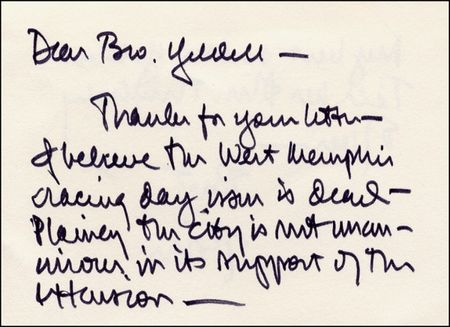 Dear Bro. —
Thanks for your letter —
I believe the West Memphis
racing day issue is dead —
Plainly the city is not unan-
imous in its support of the
extension —